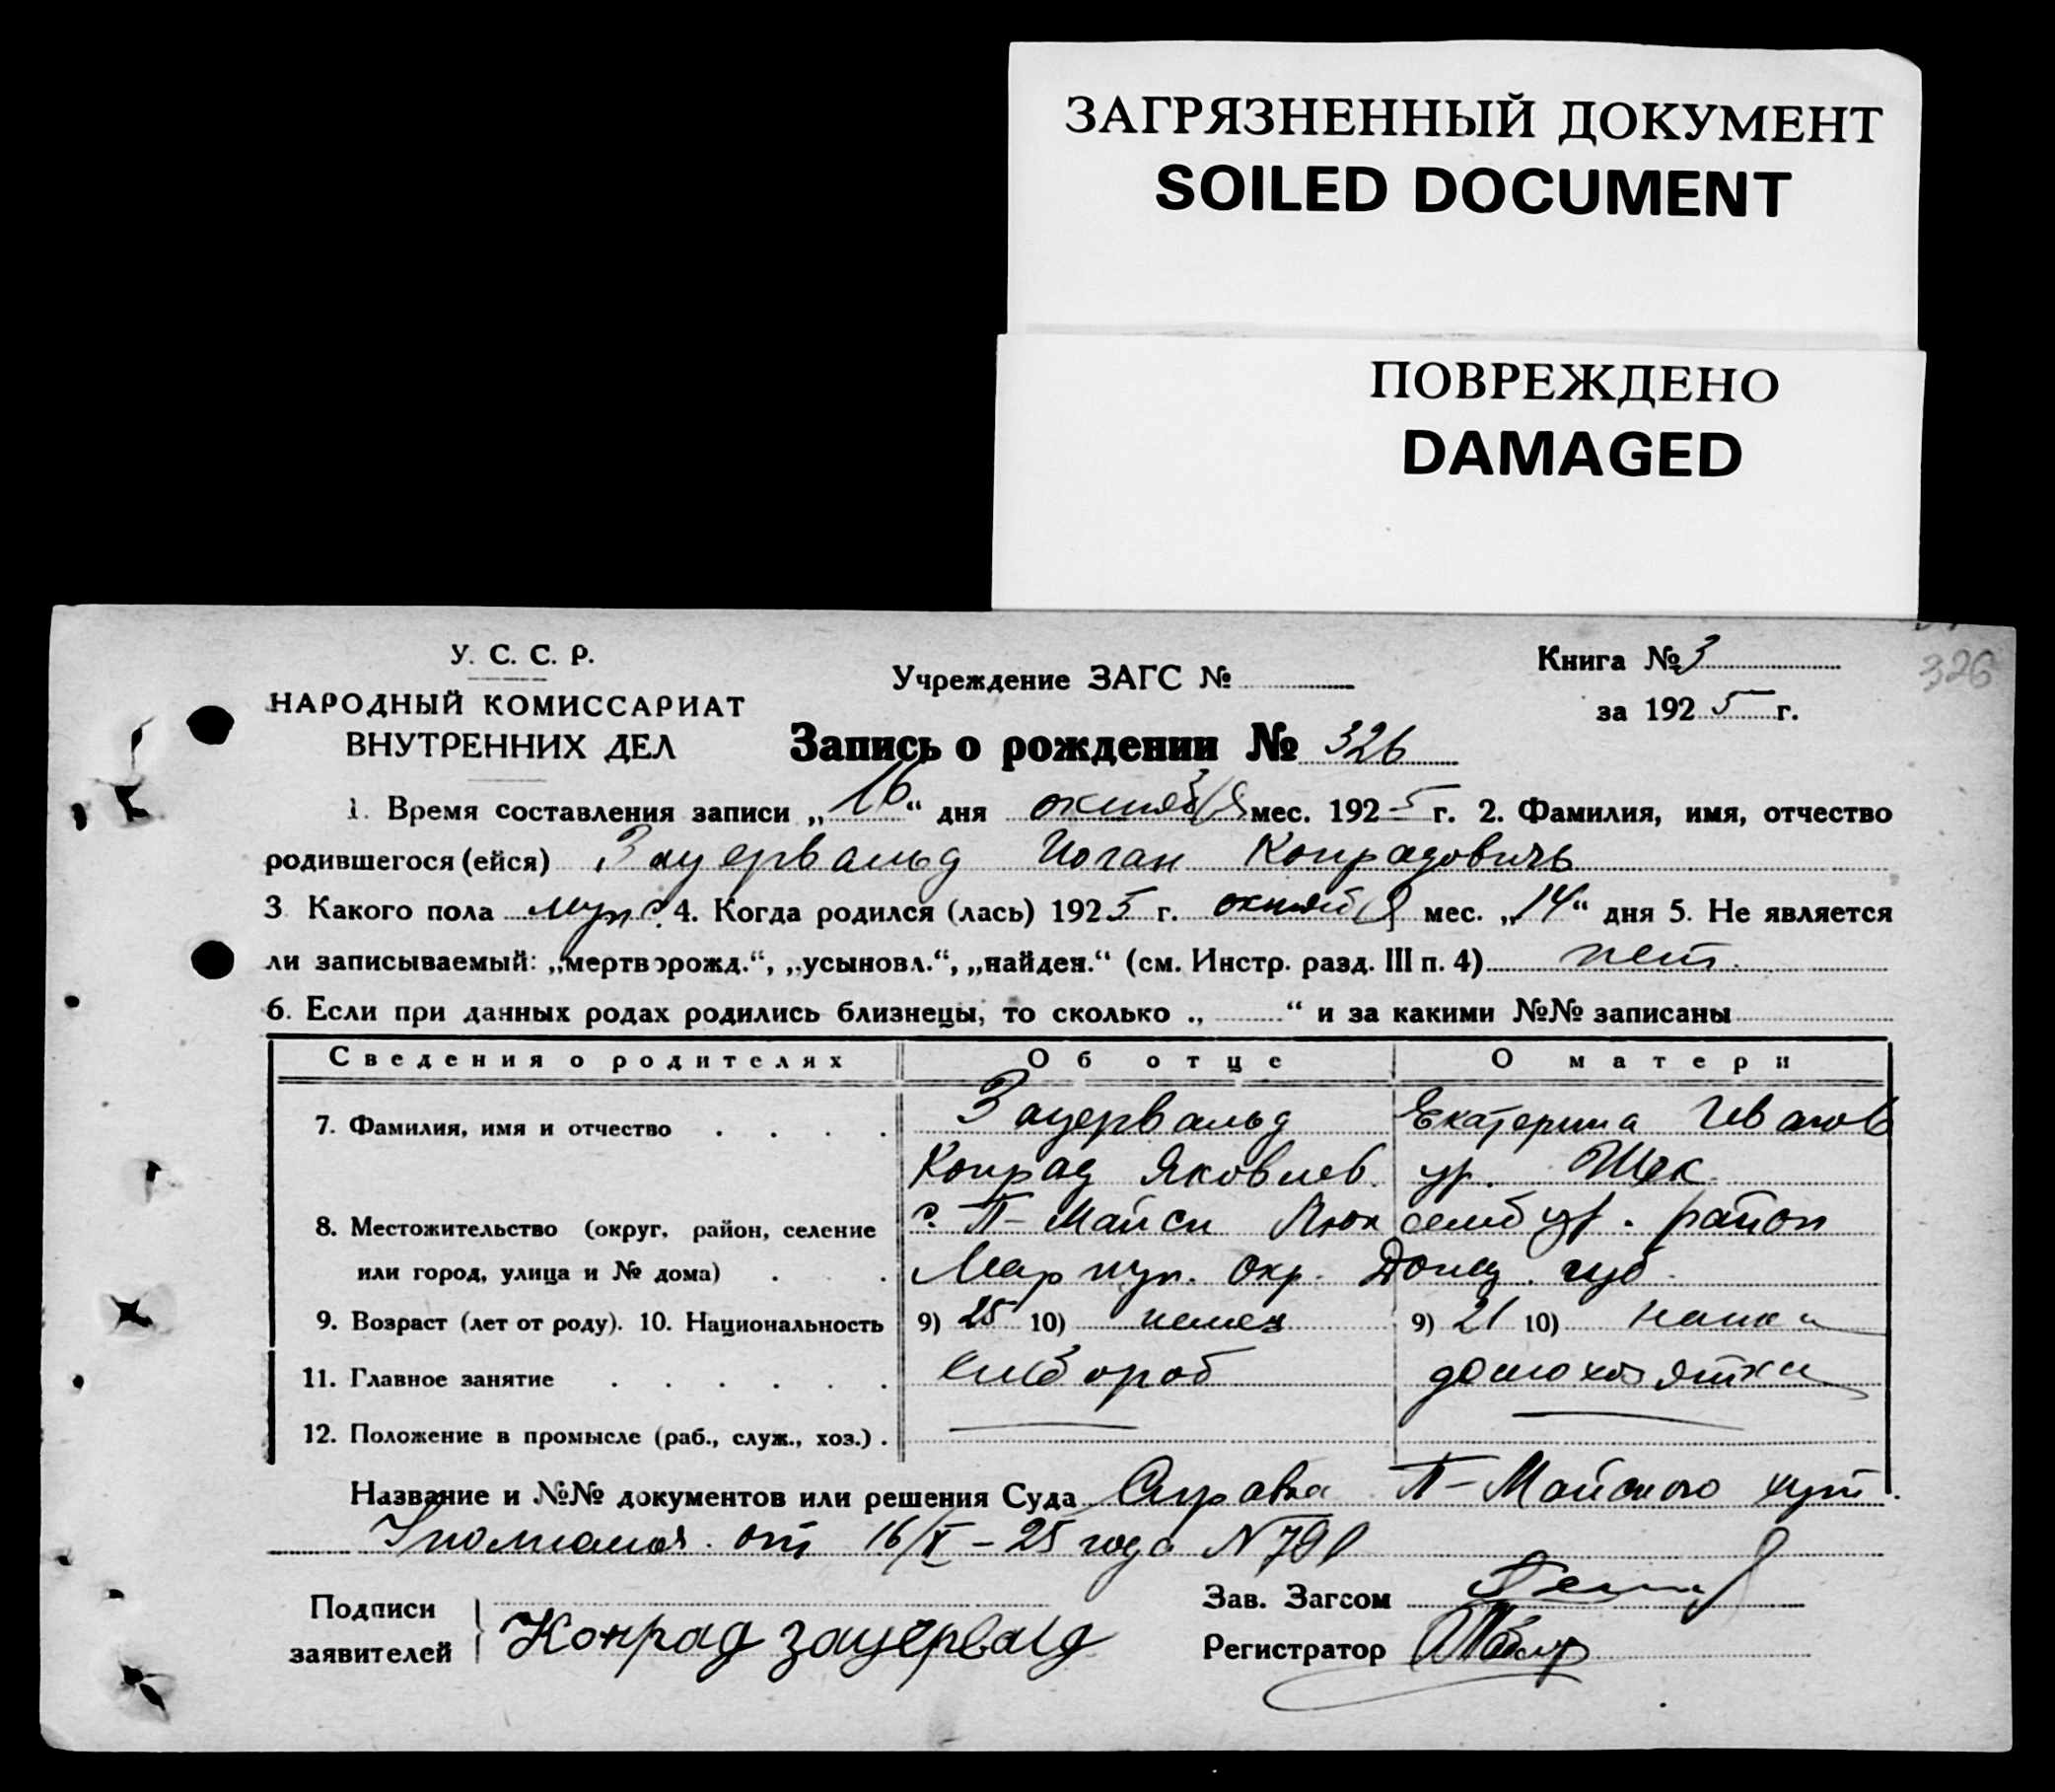 ЗАГРЯЗНЕННЫЙ ДОКУМЕНТ
SOILED DOCUMENT
ПОВРЕЖДЕНО
DAMAGED
326
У. С. С. Р.
НАРОДНЫЙ КОМИССАРИАТ
ВНУТРЕННИХ ДЕЛ
Учреждение ЗАГС №
Книга № 3
за 1925 г.
Запись о рождении № 326
1. Время составления записи „16“ дня октября мес. 1925 г. 2. Фамилия, имя, отчество
родившегося (ейся) Зауервальд Иоган Конрадовичъ
3 Какого пола муж. 4. Когда родился (лась) 1925 г. октября мес. „14“ дня 5. Не является
ли записываемый: „мертворожд.“, „усыновл.“, „найден.“ (см. Инстр. разд. III п. 4) нет.
6. Если при данных родах родились близнецы, то сколько „ “ и за какими №№ записаны
Сведения о родителях Об отце О матери
7. Фамилия, имя и отчество Зауервальд Екатерина Иванов
Конрад Яковлев. ур. Шек
8. Местожительство (округ, район, селение с. П-Майск Люксембур. район
или город, улица и № дома) Мариуп. окр. Донец. губ.
9. Возраст (лет от роду). 10. Национальность 9) 25 10) немец 9) 21 10) немка
11. Главное занятие хлебороб домохозяйка
12. Положение в промысле (раб., служ., хоз.)
Название и №№ документов или решения Суда Справка П-Майского хут.
от 16/X-25 года N 790
Подписи
заявителей
Конрад зауервалд
Зав. Загсом
Регистратор